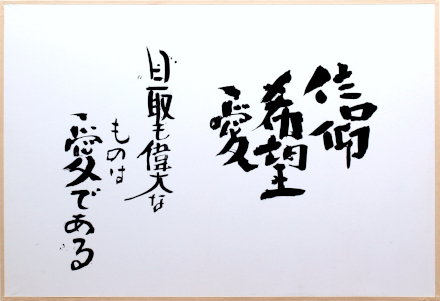 信仰
希望
愛
最も偉大な
ものは
愛である